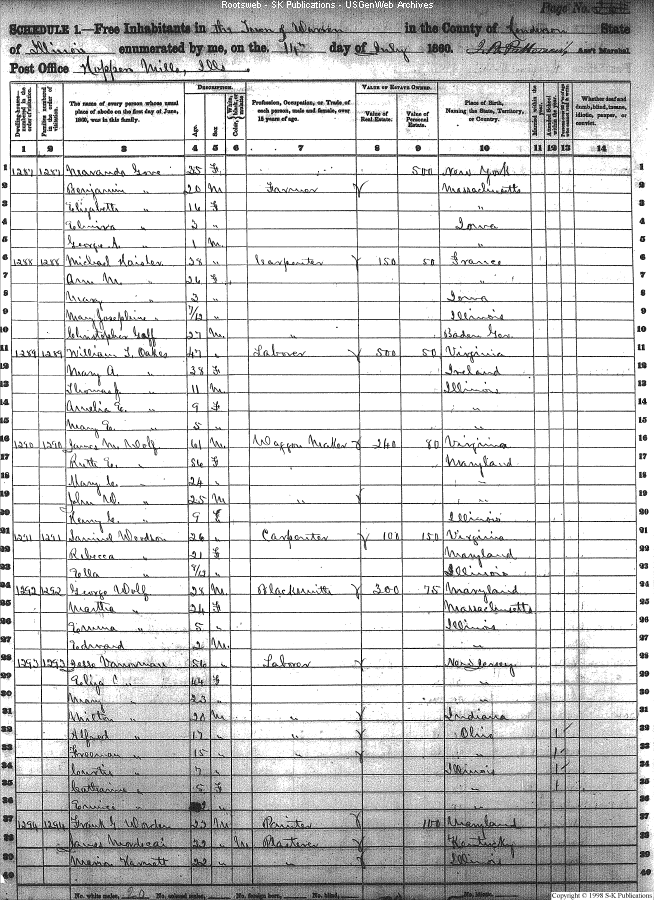 Rootsweb - SK Publications - USGenWeb Archives
Page No.
SCHEDULE 1.—Free Inhabitants in the Town of Warren in the County of Henderson State
of Illinois enumerated by me, on the 14th day of July 1860. Ass't Marshal
Post Office Hoppers Mills, Ills
Dwelling-houses—numbered in the order of visitation.
Families numbered in the order of visitation.
The name of every person whose usual place of abode on the first day of June, 1860, was in this family.
DESCRIPTION.
Age.
Sex.
Profession, Occupation, or Trade, of each person, male and female, over 15 years of age.
VALUE OF ESTATE OWNED.
Value of Real Estate.
Value of Personal Estate.
Place of Birth, Naming the State, Territory, or Country.
Married within the year.
Whether deaf and dumb, blind, insane, idiotic, pauper, or convict.
1 2 3 4 5 6 7 8 9 10 11 12 13 14
1 1287 1287 Gove 35 F 500 New York 1
2 Benjamin " 20 M Farmer Massachusetts 2
3 Elizabeth " 16 F " 3
4 Elmira " 3 " Iowa 4
5 George A. " 1 M " 5
6 1288 1288 Michael 28 " Carpenter 150 50 France 6
7 Ann M. " 26 F " 7
8 Mary " 3 " Iowa 8
9 Mary Josephine " 7/12 " Illinois 9
10 Christopher Goff 27 M " Baden Ger. 10
11 1289 1289 William T. Oakes 47 " Laborer 500 50 Virginia 11
12 Mary A. " 38 F Ireland 12
13 Thomas J. " 11 M Illinois 13
14 Amelia E. " 9 F " 14
15 Mary E. " 5 " " 15
16 1290 1290 James M. Wolf 61 M Waggon Maker 240 80 Virginia 16
17 Ruth E. " 56 F Maryland 17
18 Mary C. " 24 " " 18
19 John W. " 25 M " " 19
20 Henry C. " 9 Illinois 20
21 1291 1291 Samuel Woodson 26 " Carpenter 100 150 Virginia 21
22 Rebecca " 21 F Maryland 22
23 Ella " 8/12 " Illinois 23
24 1292 1292 George Wolf 28 M Blacksmith 200 75 Maryland 24
25 Martha " 24 F Massachusetts 25
26 Emma " 5 " Illinois 26
27 Edward " 2 M " 27
28 1293 1293 Jesse Vannorman 56 " Laborer New Jersey 28
29 Eliza C. " 44 F " 29
30 Mary " 23 " " 30
31 Milton " 20 M " Indiana 31
32 Alfred " 17 " " Ohio 1 32
33 Freeman " 15 " " " 1 33
34 Curtis " 7 " Illinois 1 34
35 Catharine " 5 F " 1 35
36 " " " 36
37 1294 1294 Frank G. Worden 23 M Painter 100 Maryland 37
38 James Mordecai 22 " M Plasterer Kentucky 38
39 Marion 22 " " Illinois 39
40 40
No. white males, 20 No. colored males, No. foreign born, No. blind,
Copyright © 1998 S-K Publications